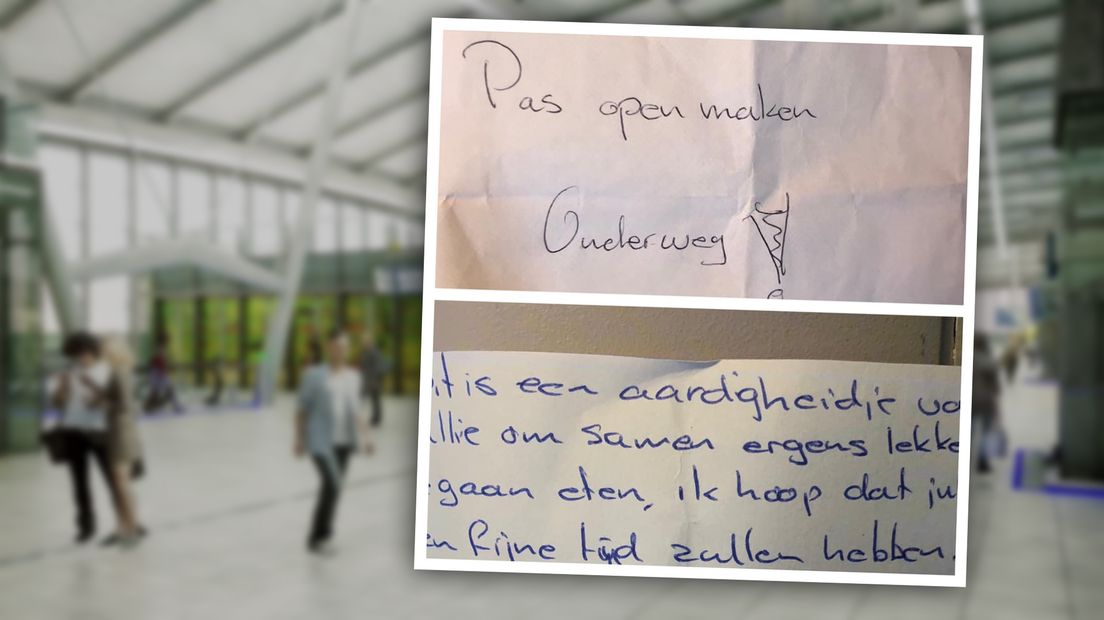 Pas open maken
Onderweg !
it is een aardigheidje vo
llie om samen ergens lekke
gaan eten, ik hoop dat ju
en fijne tijd zullen hebben.